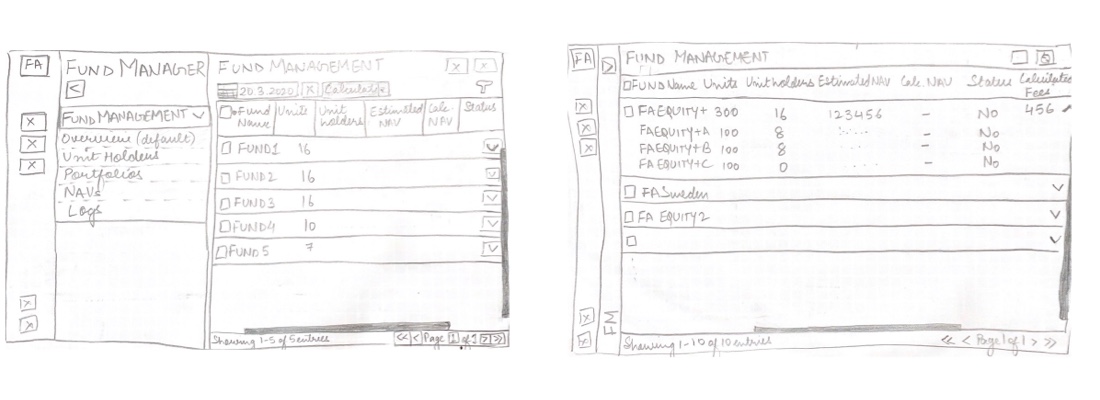 FA
FUND MANAGER
<
FUND MANAGEMENT
Overview (default)
Unit Holders
Portfolios
NAVs
Logs
FUND MANAGEMENT
20.3.2020 x Calculate
Fund Name Units Unit holders Estimated NAV Calc. NAV Status
FUND1 16
FUND2 16
FUND3 16
FUND4 10
FUND5 7
Showing 1-5 of 5 entries
<< < Page 1 of 1 > >>
FA
>
FM
FUND MANAGEMENT
FUND Name Units Unit holders Estimated NAV Calc. NAV Status Calculated Fees
FA EQUITY+ 300 16 123456 - No 456
FA EQUITY+A 100 8 ..... - No
FA EQUITY+B 100 8 - No
FA EQUITY+C 100 0 .... - No
FA Sweden
FA EQUITY2
Showing 1-10 of 10 entries
<< < Page 1 of 1 > >>